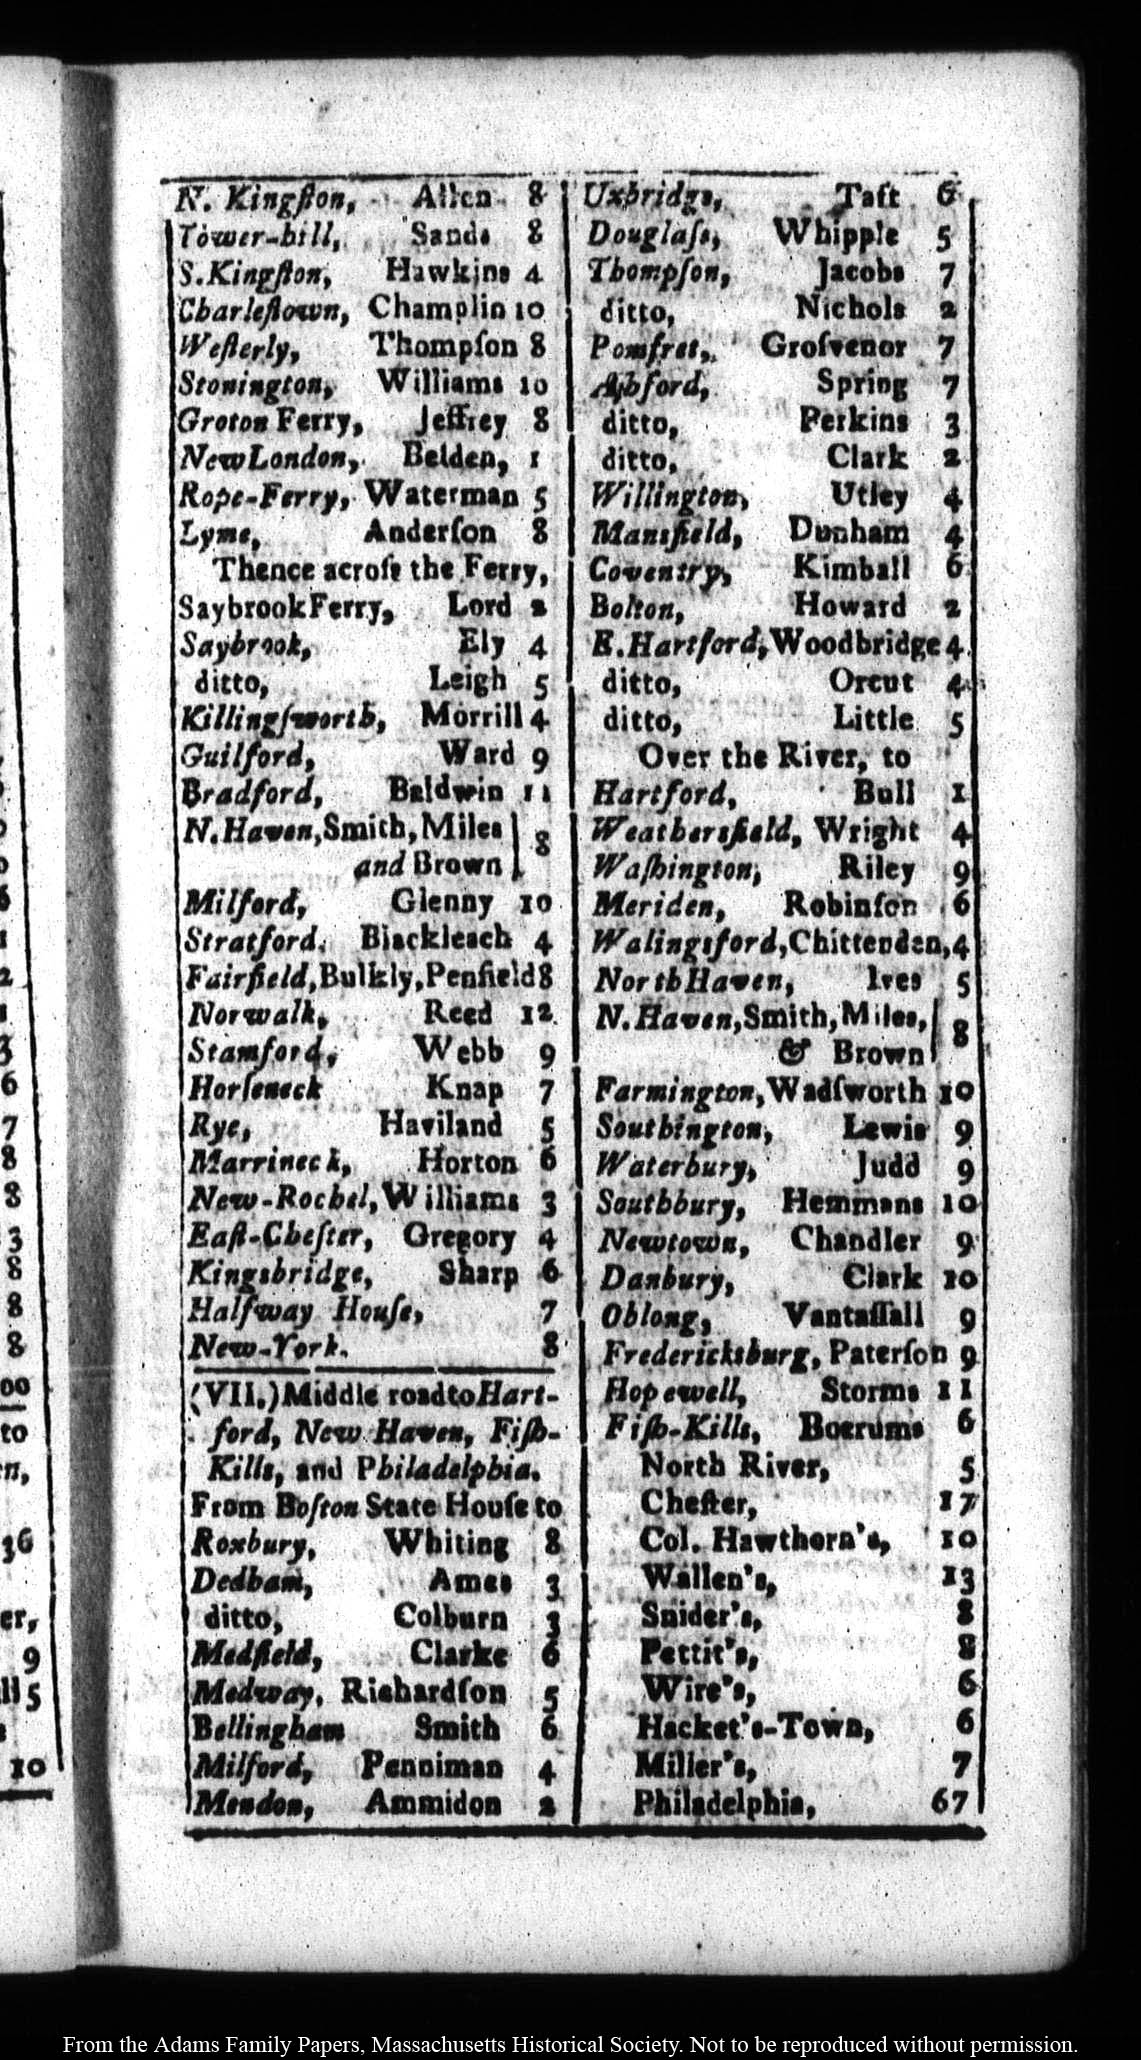 N. Kingſton, Allen 8
Tower-hill, Sands 8
S. Kingſton, Hawkins 4
Charleſtown, Champlin 10
Weſterly, Thompſon 8
Stonington, Williams 10
Groton Ferry, Jeffrey 8
New London, Belden, 1
Rope-Ferry, Waterman 5
Lyme, Anderſon 8
Thence acroſs the Ferry,
Saybrook Ferry, Lord 2
Saybrook, Ely 4
ditto, Leigh 5
Killingſworth, Morrill 4
Guilford, Ward 9
Bradford, Baldwin 11
N. Haven, Smith, Miles
and Brown 8
Milford, Glenny 10
Stratford, Blackleach 4
Fairfield, Bulkly, Penfield 8
Norwalk, Reed 12
Stamford, Webb 9
Horſeneck Knap 7
Rye, Haviland 5
Marrineck, Horton 6
New-Rochel, Williams 3
Eaſt-Cheſter, Gregory 4
Kingsbridge, Sharp 6
Halfway Houſe, 7
New-York. 8
(VII.) Middle road to Hart-
ford, New Haven, Fiſh-
Kills, and Philadelphia.
From Boſton State Houſe to
Roxbury, Whiting 8
Dedham, Ames 3
ditto, Colburn 3
Medfield, Clarke 6
Medway, Richardſon 5
Bellingham Smith 6
Milford, Penniman 4
Mendon, Ammidon 2
Uxbridge, Taft 6
Douglaſs, Whipple 5
Thompſon, Jacobs 7
ditto, Nichols 2
Pomfret, Groſvenor 7
Aſhford, Spring 7
ditto, Perkins 3
ditto, Clark 2
Willington, Utley 4
Mansfield, Dunham 4
Coventry, Kimball 6
Bolton, Howard 2
E. Hartford, Woodbridge 4
ditto, Orcut 4
ditto, Little 5
Over the River, to
Hartford, Bull 1
Weathersfield, Wright 4
Waſhington, Riley 9
Meriden, Robinſon 6
Walingsford, Chittenden, 4
North Haven, Ives 5
N. Haven, Smith, Miles,
& Brown 8
Farmington, Wadſworth 10
Southington, Lewis 9
Waterbury, Judd 9
Southbury, Hemmans 10
Newtown, Chandler 9
Danbury, Clark 10
Oblong, Vantaſſall 9
Fredericksburg, Paterſon 9
Hopewell, Storms 11
Fiſh-Kills, Boerums 6
North River, 5
Cheſter, 17
Col. Hawthorn's, 10
Wallen's, 13
Snider's, 8
Pettit's, 8
Wire's, 6
Hacket's-Town, 6
Miller's, 7
Philadelphia, 67
From the Adams Family Papers, Massachusetts Historical Society. Not to be reproduced without permission.